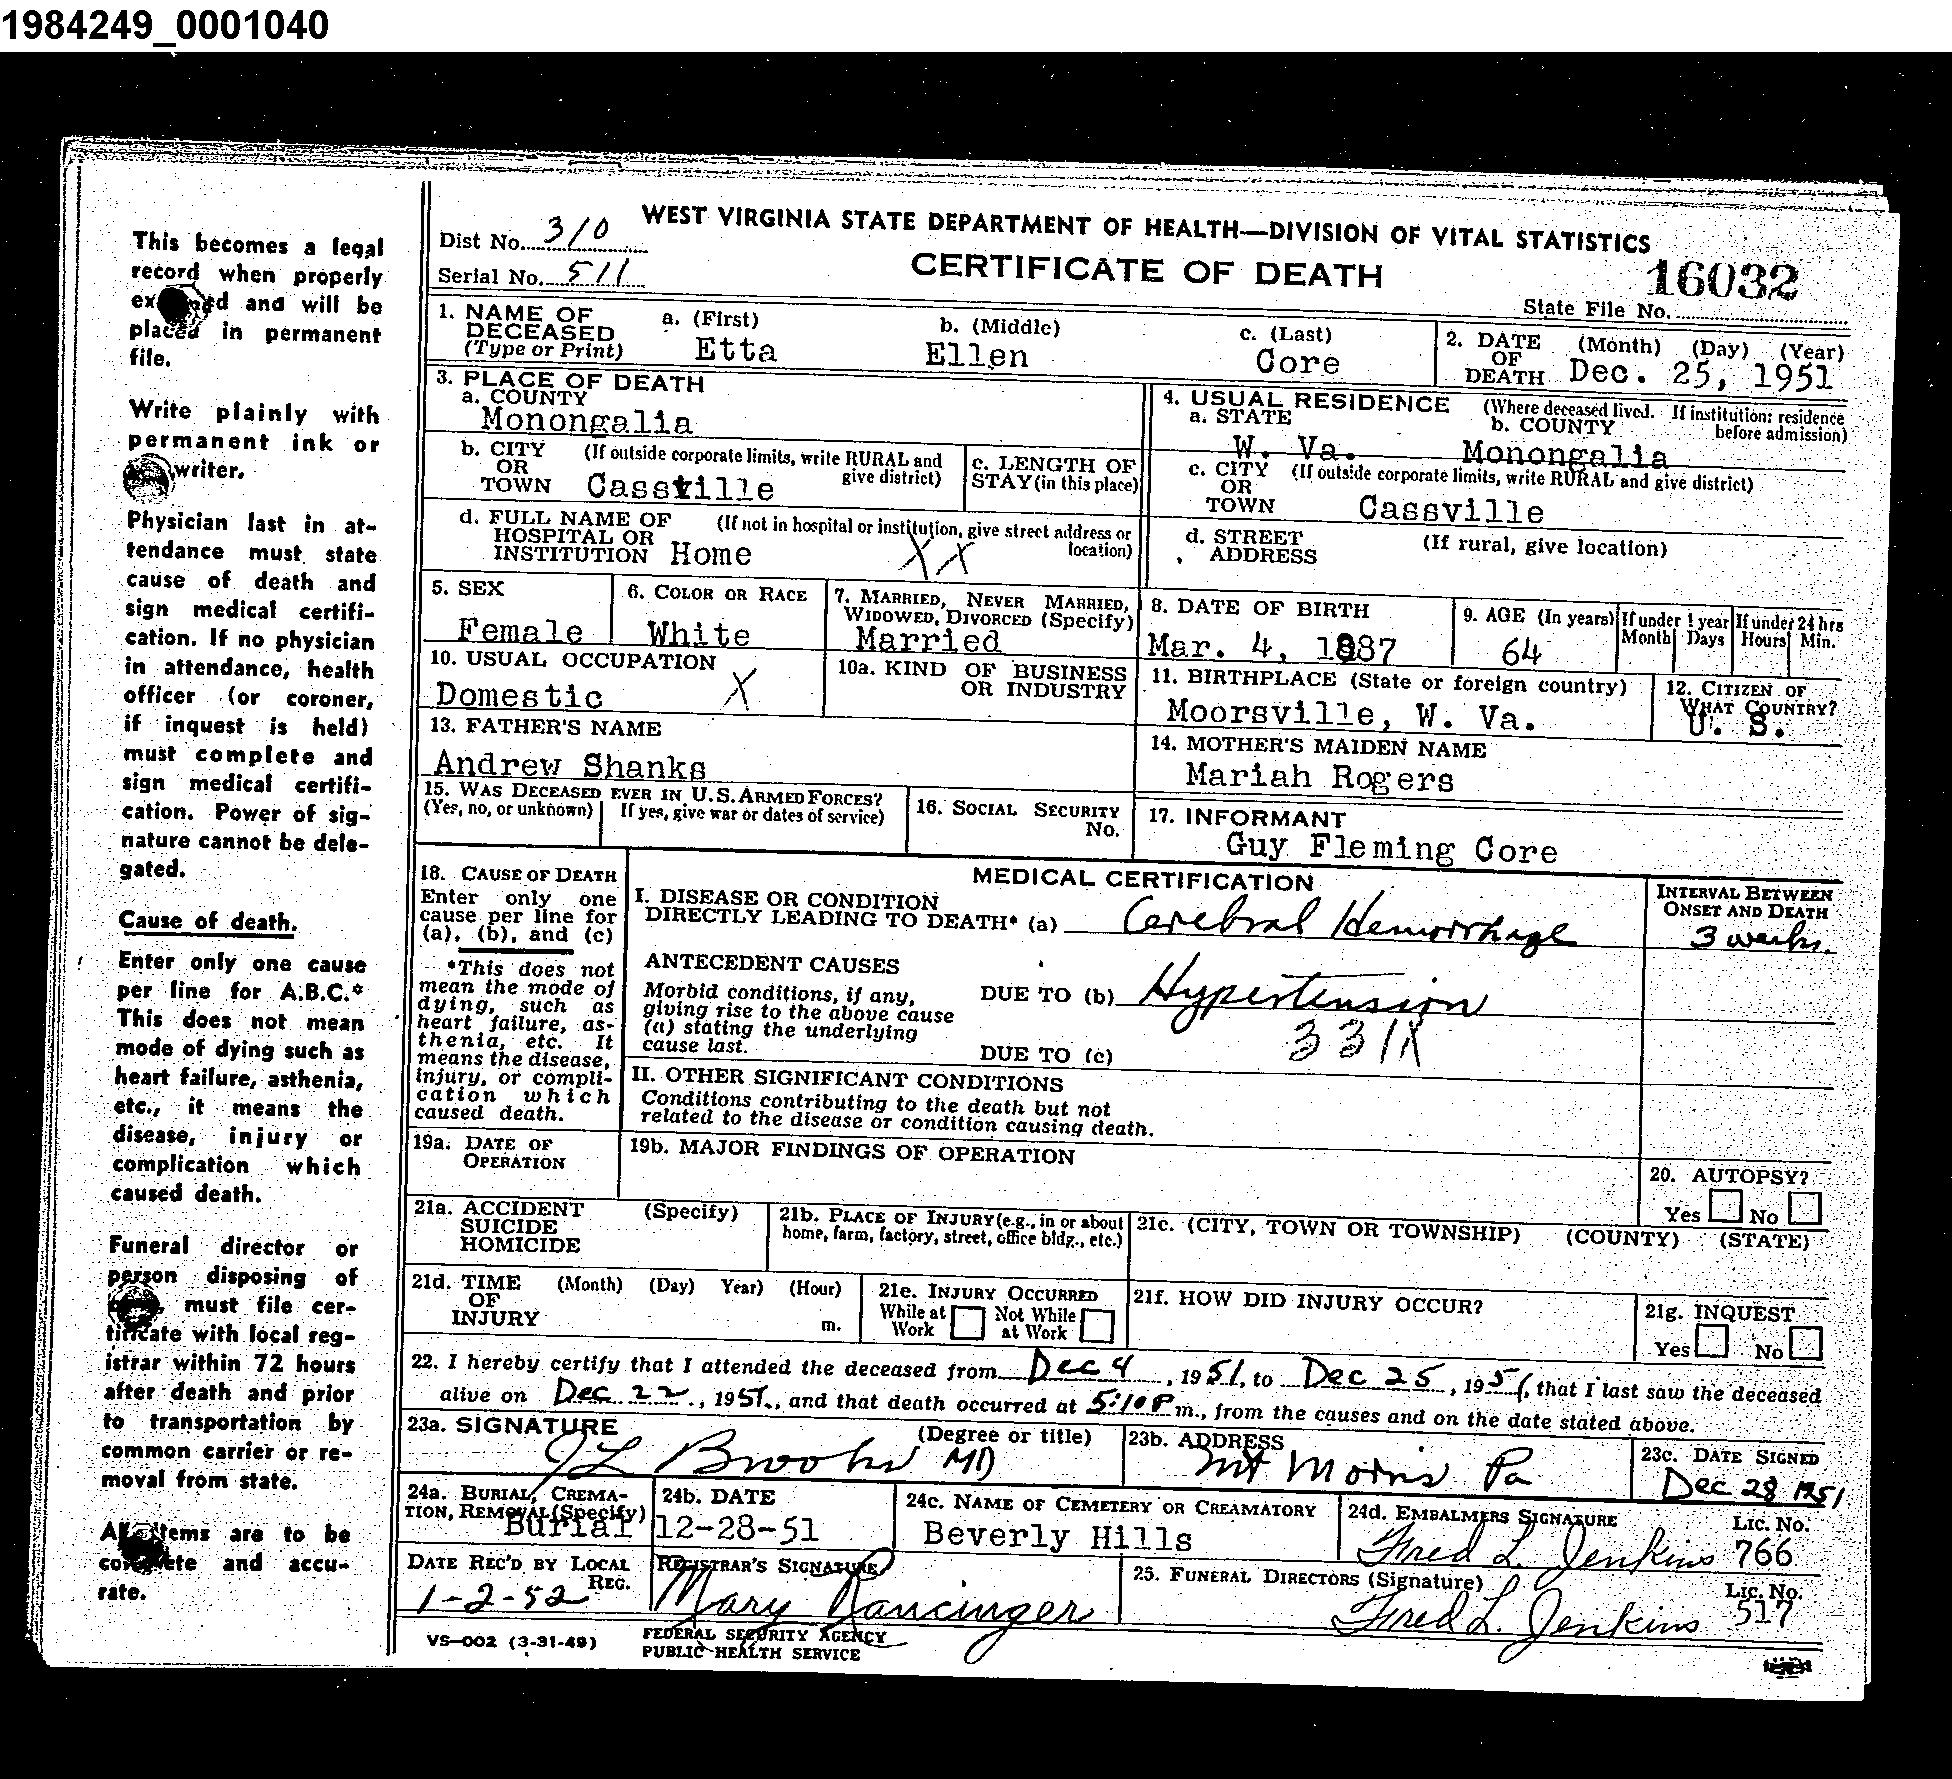 1984249_0001040
This becomes a legal
record when properly
and will be
placed in permanent
file.
Write plainly with
permanent ink or
writer.
Physician last in at-
tendance must state
cause of death and
sign medical certifi-
cation. If no physician
in attendance, health
officer (or coroner,
if inquest is held)
must complete and
sign medical certifi-
cation. Power of sig-
nature cannot be dele-
gated.
Cause of death.
Enter only one cause
per line for A.B.C.*
This does not mean
mode of dying such as
heart failure, asthenia,
etc., it means the
disease, injury or
complication which
caused death.
Funeral director or
person disposing of
must file cer-
tificate with local reg-
istrar within 72 hours
after death and prior
to transportation by
common carrier or re-
moval from state.
All items are to be
complete and accu-
rate.
WEST VIRGINIA STATE DEPARTMENT OF HEALTH—DIVISION OF VITAL STATISTICS
Dist No. 310
Serial No. 511
CERTIFICATE OF DEATH
16032
State File No.
1. NAME OF DECEASED (Type or Print)
a. (First) Etta
b. (Middle) Ellen
c. (Last) Core
2. DATE OF DEATH (Month) (Day) (Year) Dec. 25, 1951
3. PLACE OF DEATH
a. COUNTY
Monongalia
b. CITY OR TOWN (If outside corporate limits, write RURAL and give district) Cassville
c. LENGTH OF STAY (in this place)
d. FULL NAME OF HOSPITAL OR INSTITUTION (If not in hospital or institution, give street address or location) Home XX
4. USUAL RESIDENCE (Where deceased lived. If institution: residence before admission)
a. STATE W. Va.
b. COUNTY Monongalia
c. CITY OR TOWN (If outside corporate limits, write RURAL and give district) Cassville
d. STREET ADDRESS (If rural, give location)
5. SEX Female
6. COLOR OR RACE White
7. MARRIED, NEVER MARRIED, WIDOWED, DIVORCED (Specify) Married
8. DATE OF BIRTH Mar. 4, 1887
9. AGE (In years) 64
If under 1 year Month Days
If under 24 hrs Hours Min.
10. USUAL OCCUPATION Domestic X
10a. KIND OF BUSINESS OR INDUSTRY
11. BIRTHPLACE (State or foreign country) Moorsville, W. Va.
12. CITIZEN OF WHAT COUNTRY? U. S.
13. FATHER'S NAME
Andrew Shanks
14. MOTHER'S MAIDEN NAME
Mariah Rogers
15. WAS DECEASED EVER IN U.S. ARMED FORCES?
(Yes, no, or unknown) If yes, give war or dates of service)
16. SOCIAL SECURITY No.
17. INFORMANT
Guy Fleming Core
18. CAUSE OF DEATH
Enter only one
cause per line for
(a), (b), and (c)
*This does not
mean the mode of
dying, such as
heart failure, as-
thenia, etc. It
means the disease,
injury, or compli-
cation which
caused death.
MEDICAL CERTIFICATION
INTERVAL BETWEEN ONSET AND DEATH
I. DISEASE OR CONDITION
DIRECTLY LEADING TO DEATH* (a) Cerebral Hemorrhage 3 weeks.
ANTECEDENT CAUSES
Morbid conditions, if any,
giving rise to the above cause
(a) stating the underlying
cause last.
DUE TO (b) Hypertension
331X
DUE TO (c)
II. OTHER SIGNIFICANT CONDITIONS
Conditions contributing to the death but not
related to the disease or condition causing death.
19a. DATE OF OPERATION
19b. MAJOR FINDINGS OF OPERATION
20. AUTOPSY?
Yes No
21a. ACCIDENT SUICIDE HOMICIDE (Specify)
21b. PLACE OF INJURY (e.g., in or about
home, farm, factory, street, office bldg., etc.)
21c. (CITY, TOWN OR TOWNSHIP) (COUNTY) (STATE)
21d. TIME OF INJURY (Month) (Day) Year) (Hour) m.
21e. INJURY OCCURRED
While at Work Not While at Work
21f. HOW DID INJURY OCCUR?
21g. INQUEST
Yes No
22. I hereby certify that I attended the deceased from Dec 4, 1951, to Dec 25, 1951, that I last saw the deceased
alive on Dec 22, 1951, and that death occurred at 5:10 P m., from the causes and on the date stated above.
23a. SIGNATURE (Degree or title)
JL Brooks MD
23b. ADDRESS
Mt Morris Pa
23c. DATE SIGNED
Dec 28 1951
24a. BURIAL, CREMA-
TION, REMOVAL (Specify)
Burial
24b. DATE
12-28-51
24c. NAME OF CEMETERY OR CREAMATORY
Beverly Hills
24d. EMBALMERS SIGNATURE LIC. NO.
Fred L. Jenkins 766
DATE REC'D BY LOCAL REG.
1-2-52
REGISTRAR'S SIGNATURE
Mary Rancinger
25. FUNERAL DIRECTORS (Signature) LIC. NO.
Fred L. Jenkins 517
VS-002 (3-31-49)
FEDERAL SECURITY AGENCY
PUBLIC HEALTH SERVICE